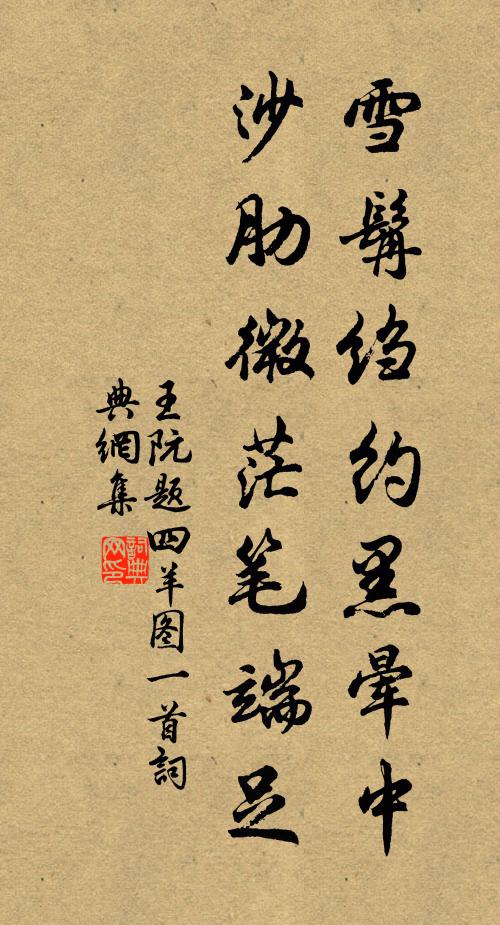 雪髯绉约黑晕中
沙肋微茫笔端足
王阮题四羊图一首詞
典網集
詞典网印